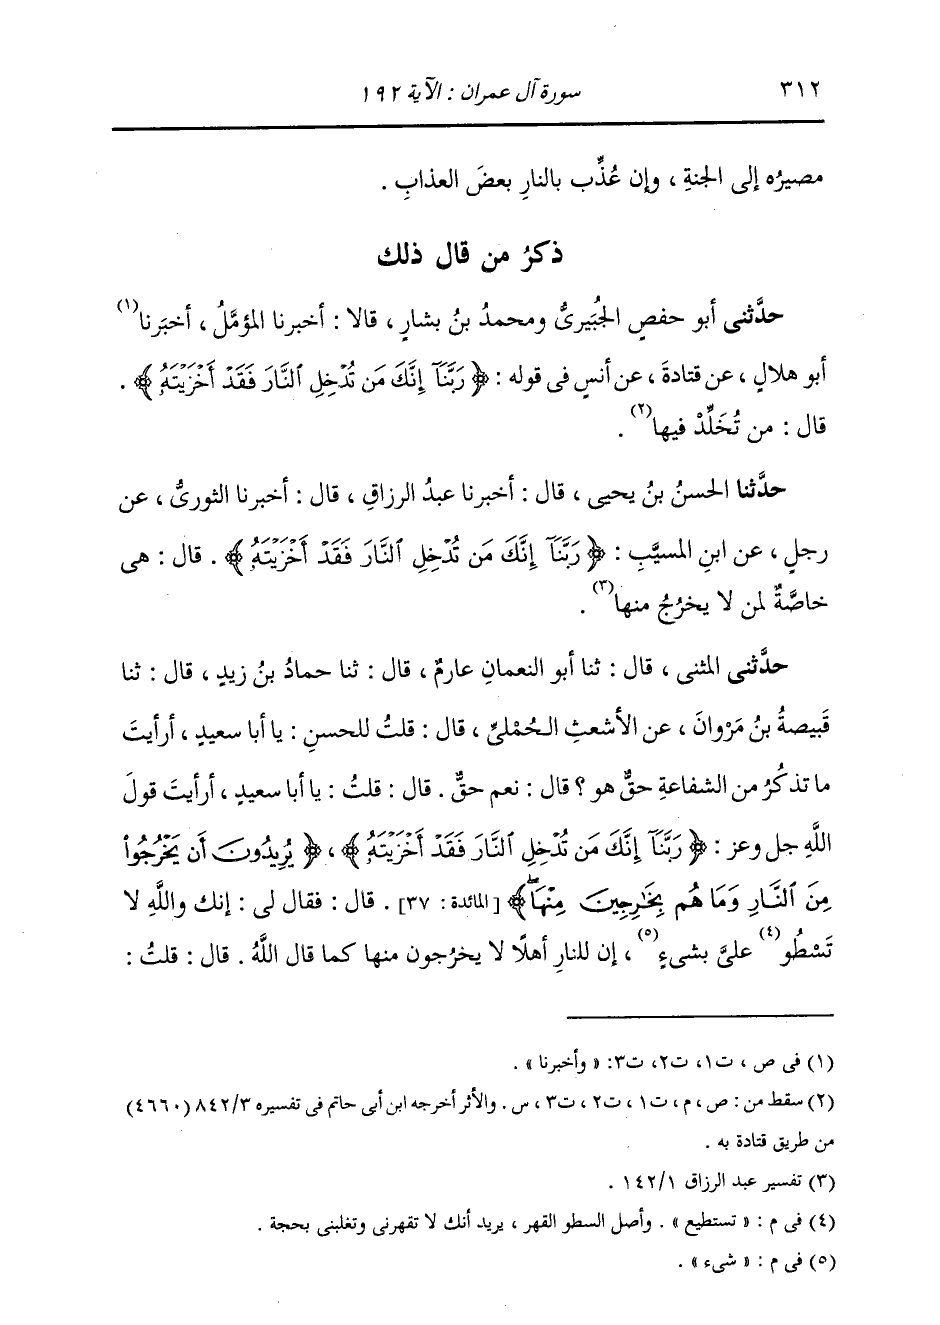 ٣١٢ سورة آل عمران : الآية ١٩٢
مصيرُه إلى الجنةِ ، وإن عُذِّب بالنارِ بعضَ العذابِ .
ذكرُ من قال ذلك
حدَّثنى أبو حفصٍ الجُبَيرىُّ ومحمدُ بنُ بشارٍ ، قالا : أخبرنا المؤمَّلُ ، أخبَرنا(١)
أبو هلالٍ ، عن قتادةَ ، عن أنسٍ فى قوله : ﴿ رَبَّنَآ إِنَّكَ مَن تُدْخِلِ ٱلنَّارَ فَقَدْ أَخْزَيْتَهُۥ ﴾ .
قال : من تُخَلِّدْ فيها(٢) .
حدَّثنا الحسنُ بنُ يحيى ، قال : أخبرنا عبدُ الرزاقِ ، قال : أخبرنا الثورىُّ ، عن
رجلٍ ، عن ابنِ المسيَّبِ : ﴿ رَبَّنَآ إِنَّكَ مَن تُدْخِلِ ٱلنَّارَ فَقَدْ أَخْزَيْتَهُۥ ﴾ . قال : هى
خاصَّةٌ لمن لا يخرُجُ منها(٣) .
حدَّثنى المثنى ، قال : ثنا أبو النعمانِ عارمٌ ، قال : ثنا حمادُ بنُ زيدٍ ، قال : ثنا
قَبيصةُ بنُ مَرْوانَ ، عن الأشعثِ الحُمْلىِّ ، قال : قلتُ للحسنِ : يا أبا سعيدٍ ، أرأيتَ
ما تذكُرُ من الشفاعةِ حقٌّ هو ؟ قال : نعم حقٌّ . قال : قلتُ : يا أبا سعيدٍ ، أرأيتَ قولَ
اللَّهِ جل وعز : ﴿ رَبَّنَآ إِنَّكَ مَن تُدْخِلِ ٱلنَّارَ فَقَدْ أَخْزَيْتَهُۥ ﴾ ، ﴿ يُرِيدُونَ أَن يَخْرُجُواْ
مِنَ ٱلنَّارِ وَمَا هُم بِخَٰرِجِينَ مِنْهَا ۖ ﴾ [المائدة : ٣٧] . قال : فقال لى : إنك واللَّهِ لا
تَسْطُو(٤) علىَّ بشىءٍ(٥) ، إن للنارِ أهلًا لا يخرُجون منها كما قال اللَّهُ . قال : قلتُ :
(١) فى ص ، ت١، ت٢، ت٣: « وأخبرنا » .
(٢) سقط من : ص ، م ، ت١ ، ت٢ ، ت٣ ، س . والأثر أخرجه ابن أبى حاتم فى تفسيره ٨٤٢/٣ (٤٦٦٠)
من طريق قتادة به .
(٣) تفسير عبد الرزاق ١٤٢/١ .
(٤) فى م : « تستطيع » . وأصل السطو القهر ، يريد أنك لا تقهرنى وتغلبنى بحجة .
(٥) فى م : « شىء » .